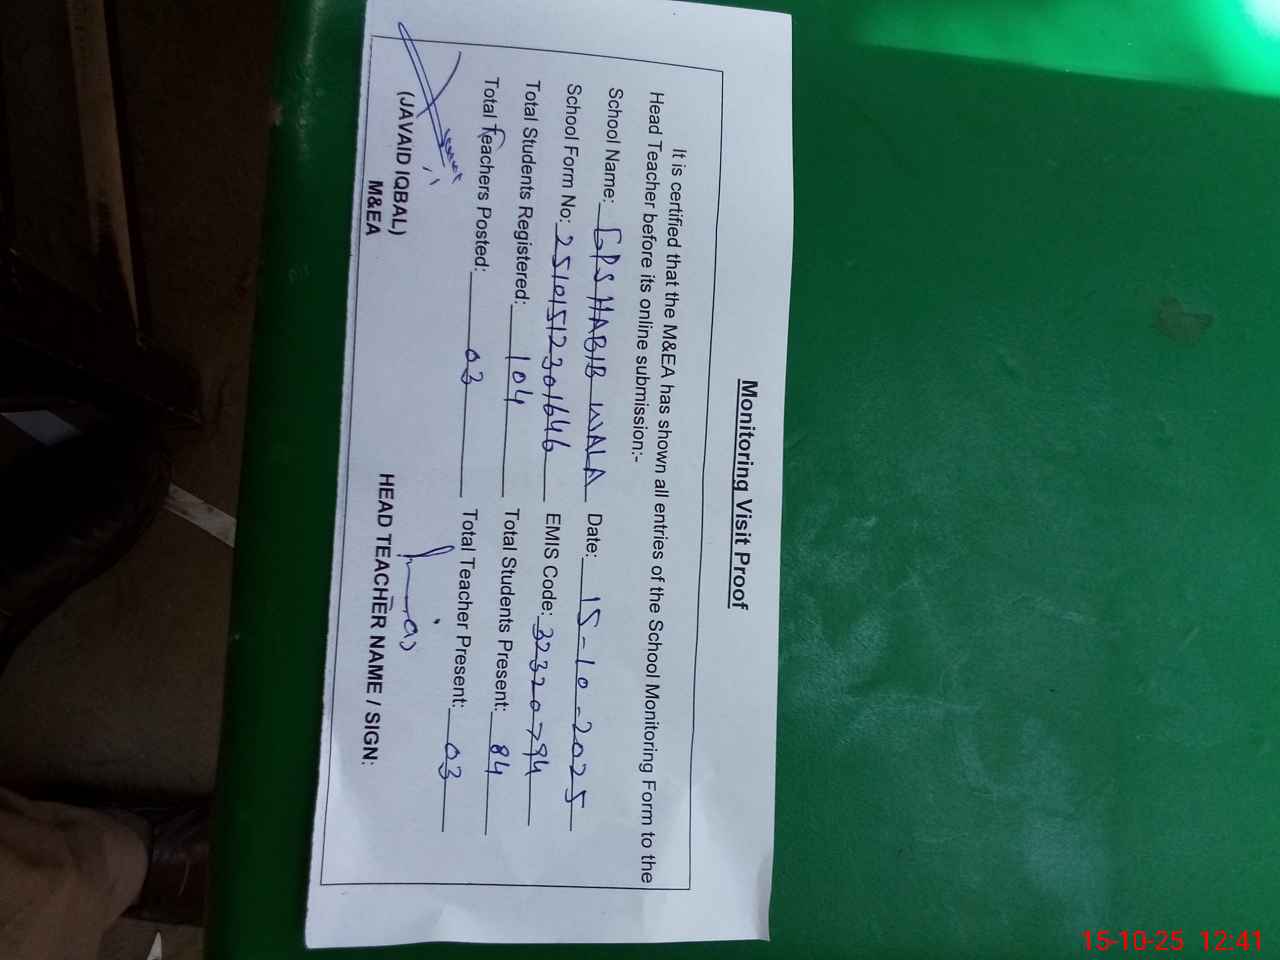 Monitoring Visit Proof
It is certified that the M&EA has shown all entries of the School Monitoring Form to the
Head Teacher before its online submission:-
School Name: GPS HABIB WALA Date: 15-10-2025
School Form No: 25101512301646 EMIS Code: 32320794
Total Students Registered: 104 Total Students Present: 84
Total Teachers Posted: 03 Total Teacher Present: 03
(JAVAID IQBAL)
M&EA
HEAD TEACHER NAME / SIGN:
15-10-25 12:41